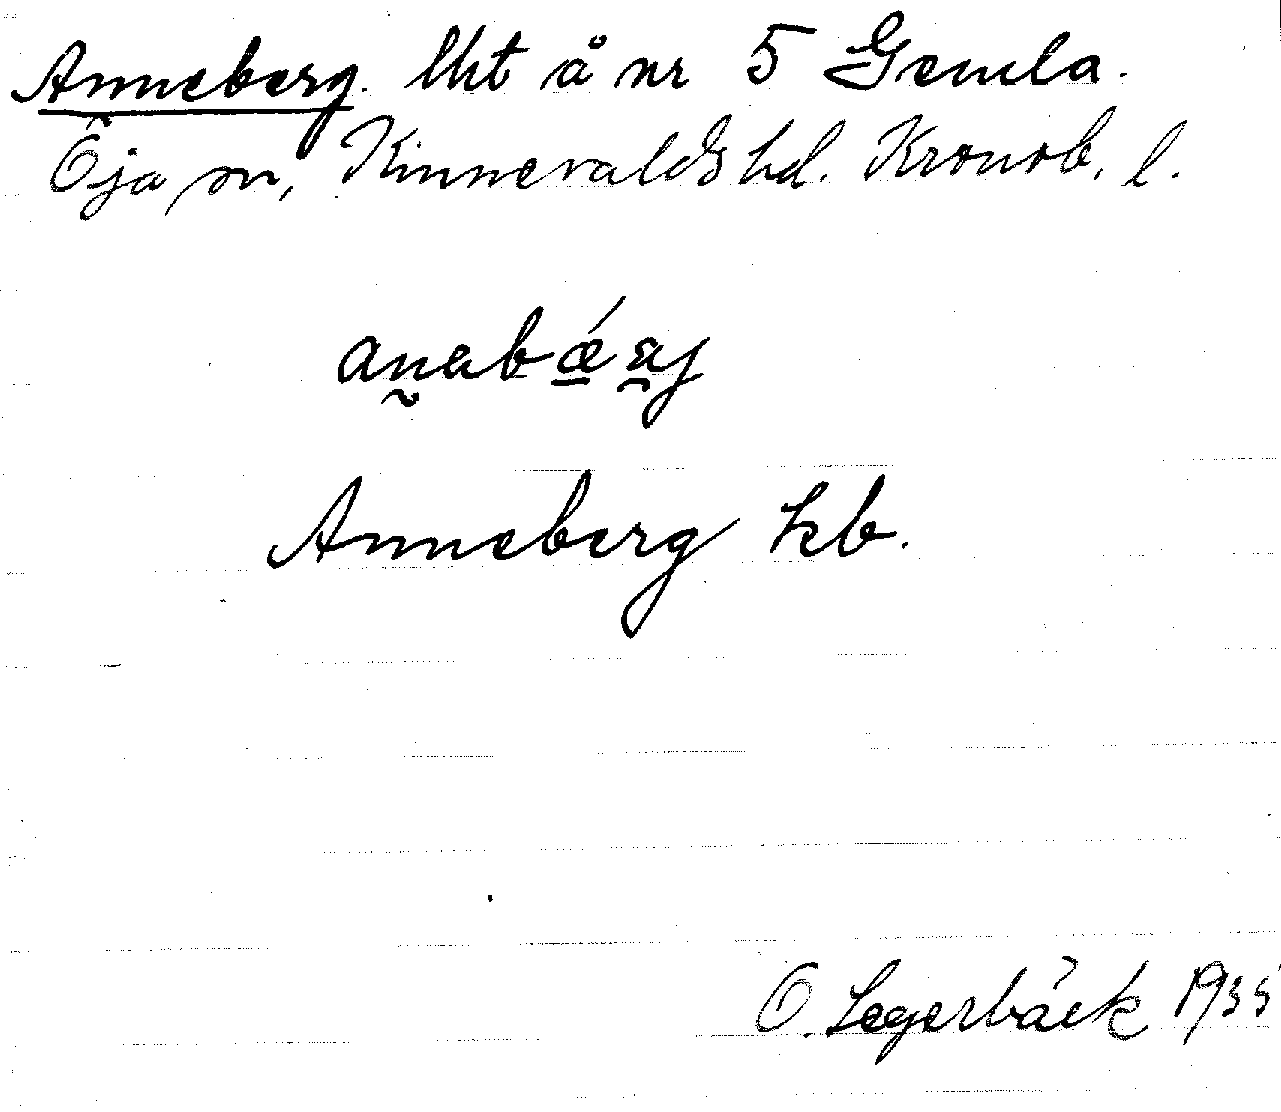 Anneberg. lht å nr 5 Gemla.
Öja sn, Kinnevalds hd. Kronob. l.
Anneberg kb.
O. Segerbäck 1935